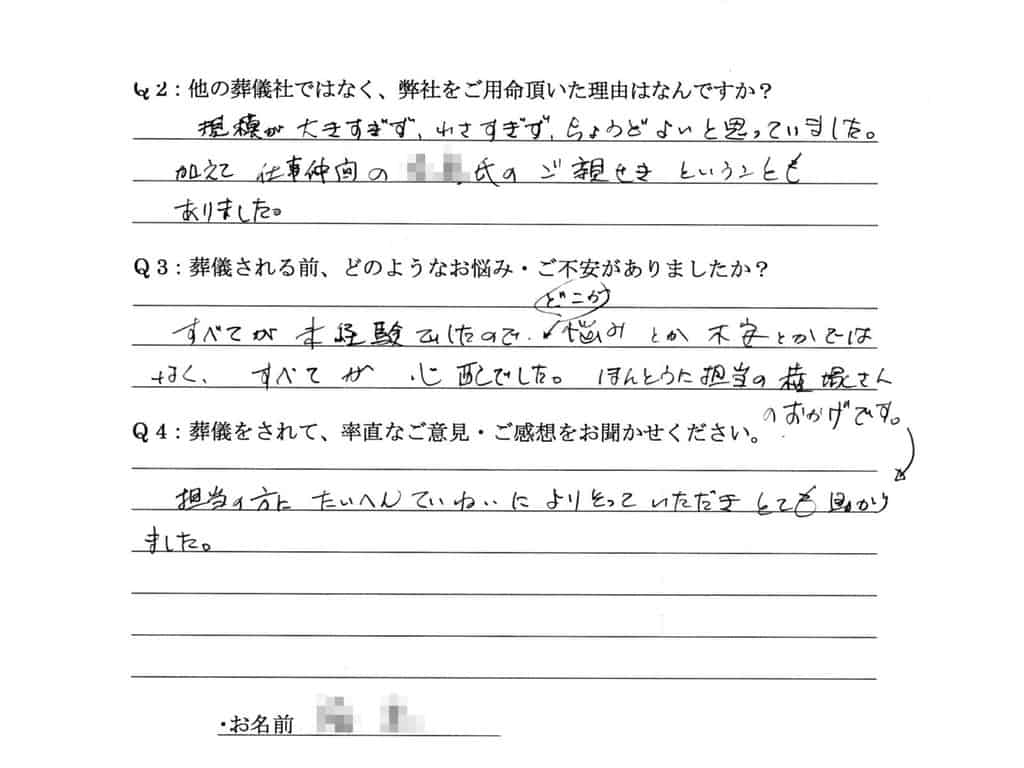 Q2：他の葬儀社ではなく、弊社をご用命頂いた理由はなんですか？
規模が大きすぎず、小さすぎず、ちょうどよいと思っていました。
加えて 仕事仲間の 氏の ご親せき ということも
ありました。
Q3：葬儀される前、どのようなお悩み・ご不安がありましたか？
どこが
すべてが 未経験でしたので、悩み とか 不安とかでは
なく、すべてが 心配でした。ほんとうに担当の さん
のおかげです。
Q4：葬儀をされて、率直なご意見・ご感想をお聞かせください。
担当の方に たいへんていねいに よりそって いただき とても 助かり
ました。
・お名前